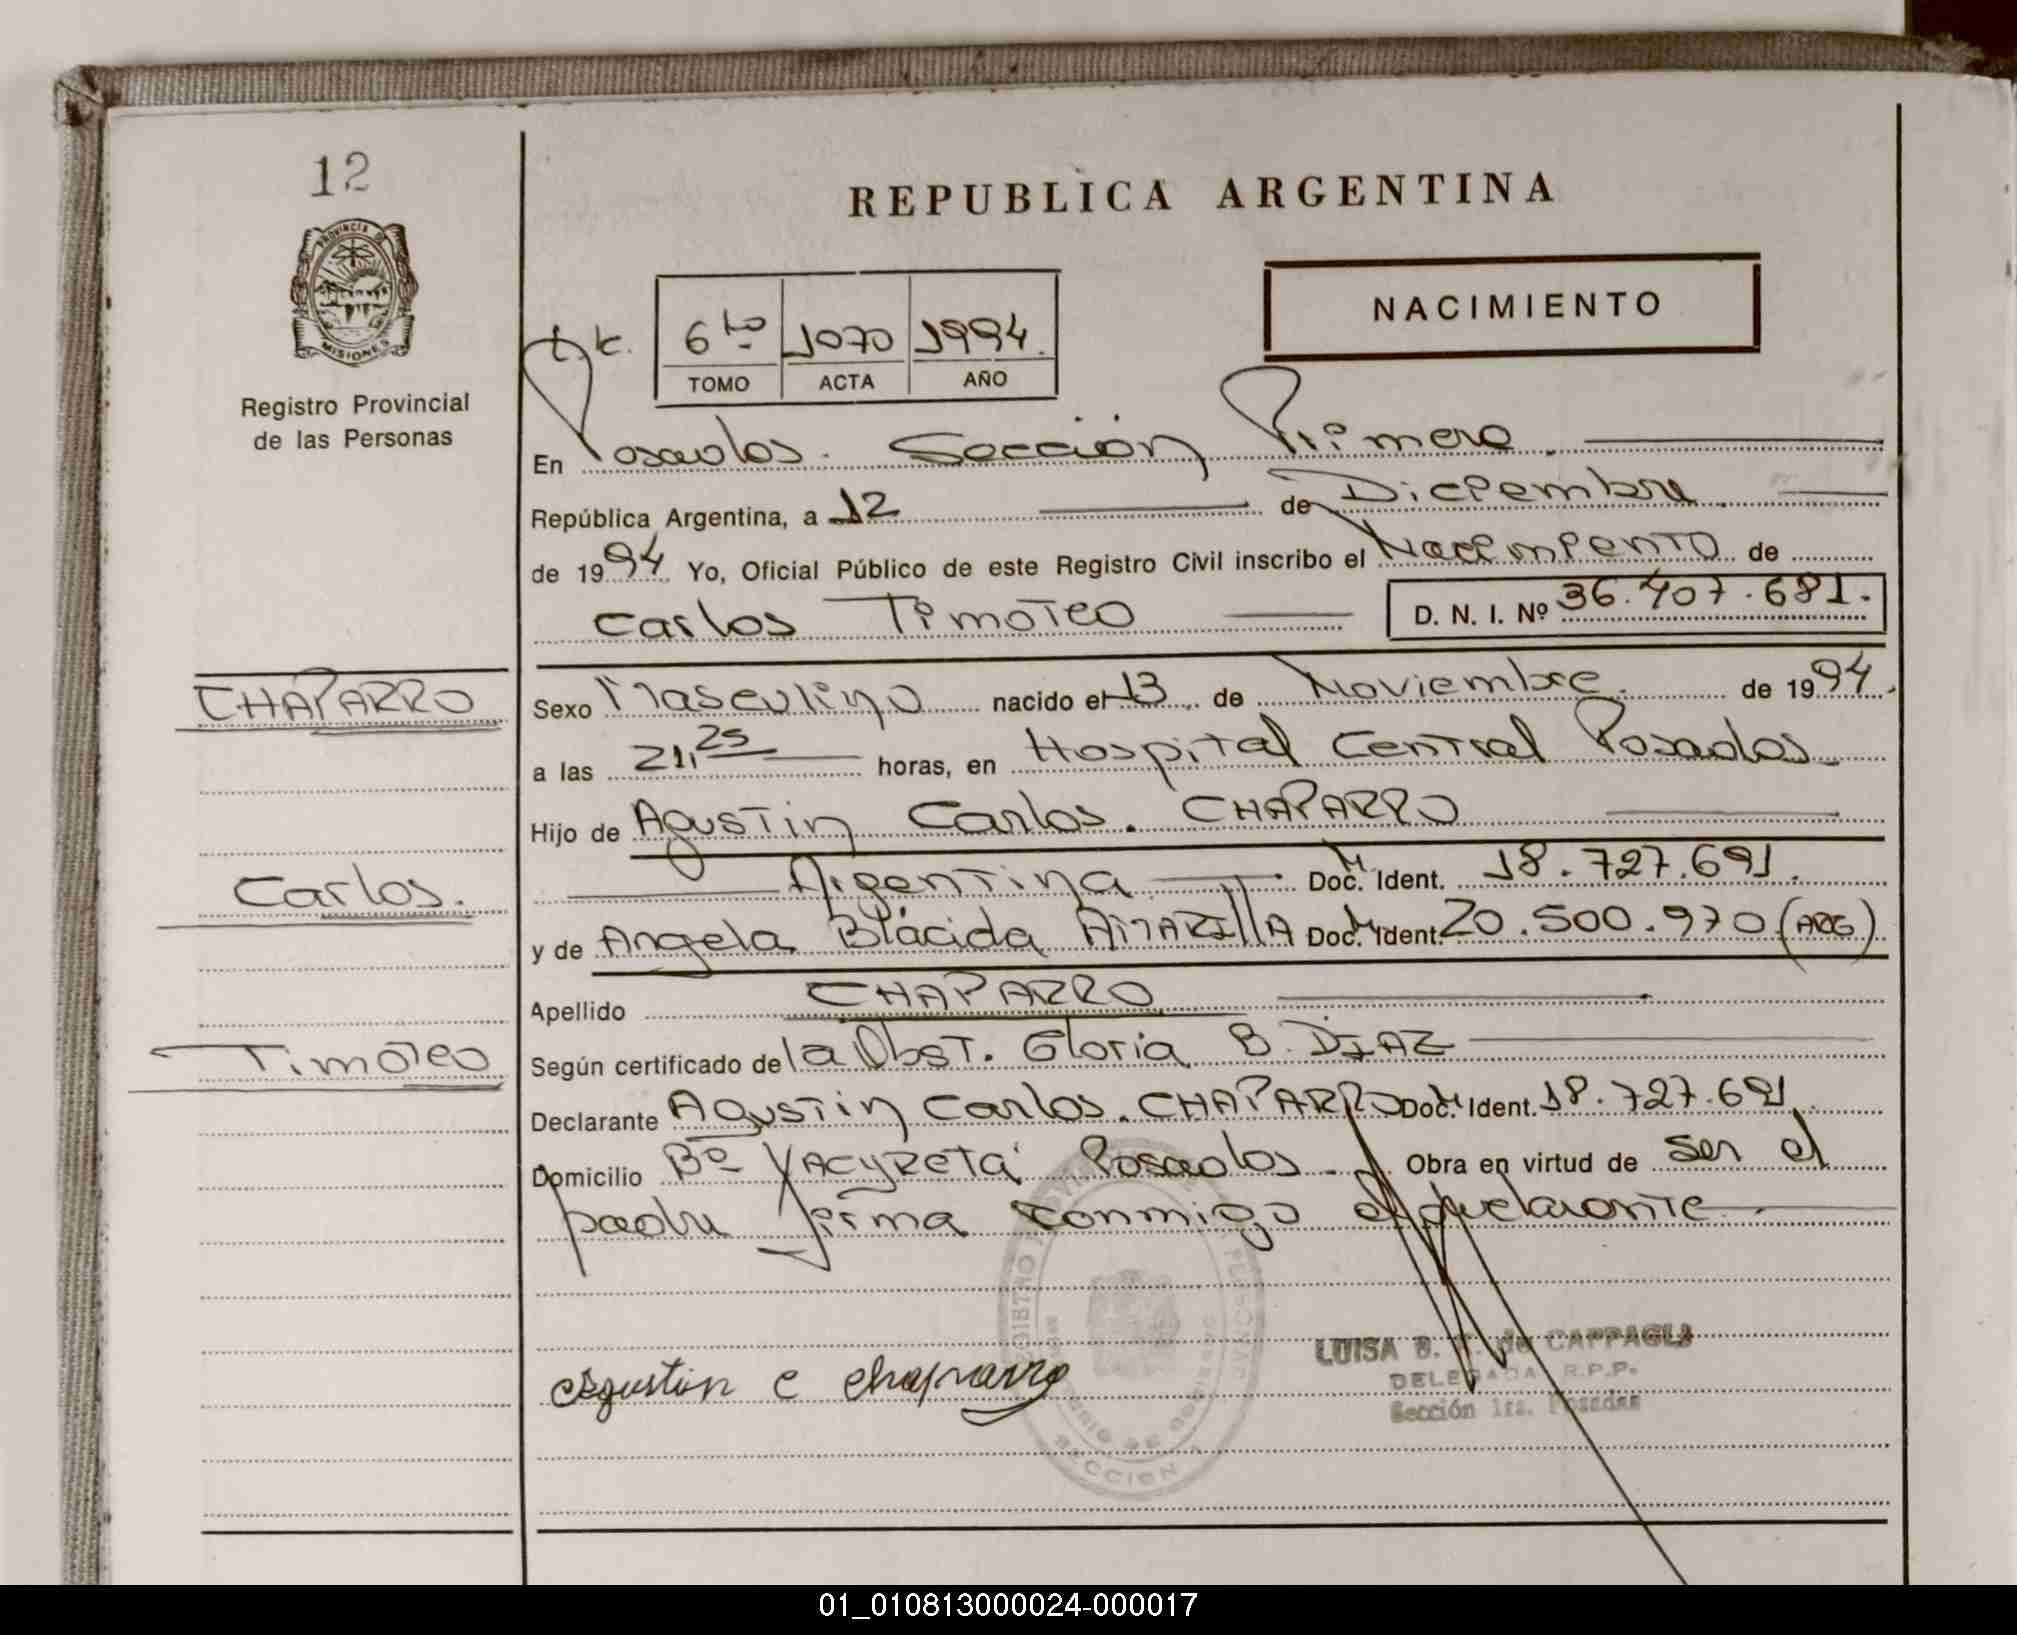 12
PROVINCIA DE
MISIONES
Registro Provincial
de las Personas
REPUBLICA ARGENTINA
NACIMIENTO
6to 1070 1994
TOMO ACTA AÑO
En Posadas. Sección Primera
República Argentina, a 12 de Diciembre
de 1994 Yo, Oficial Público de este Registro Civil inscribo el Nacimiento de
Carlos Timoteo D. N. I. Nº 36.407.681.
CHAPARRO
Sexo Masculino nacido el 13 de Noviembre de 1994
a las 21,25 horas, en Hospital Central Posadas
Hijo de Agustin Carlos. CHAPARRO
Carlos.
Argentina Doc. M Ident. 18.727.691.
y de Angela Blácida Doc. M Ident. 20.500.970 (ARG)
Apellido CHAPARRO
Timoteo
Según certificado de la Obst. Gloria B. DIAZ
Declarante Agustin Carlos. CHAPARRO Doc. M Ident. 18.727.691
Domicilio Bº YACYRETA Posadas Obra en virtud de ser el
padre firma conmigo el declarante
Agustin C Chaparro
LUISA B. de CAPPAGLI
DELEGADA R.P.P.
Sección 1ra. Posadas
SECCION
01_010813000024-000017